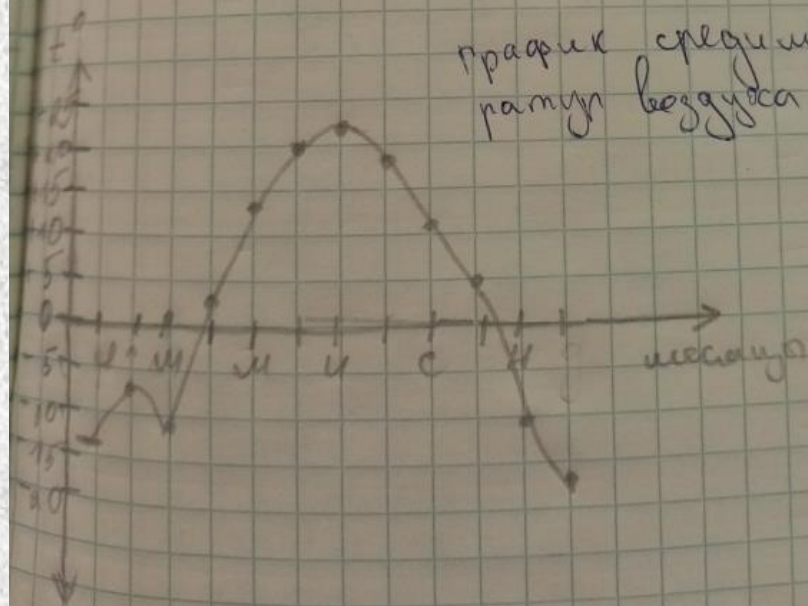 график средним
ратур воздуха
t°
25
20
15
10
5
0
-5
-10
-15
-20
Я М М И С Н
месяцы